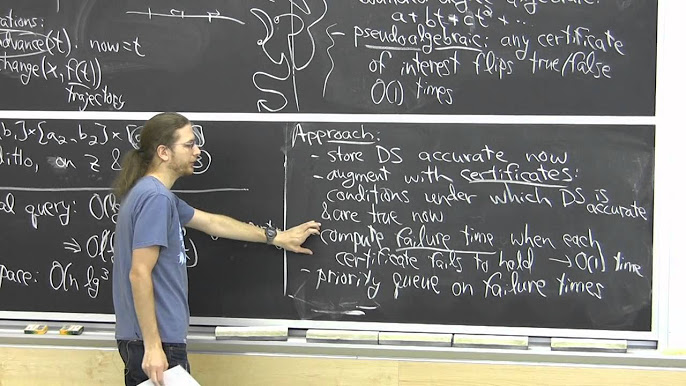 advance(t): now=t
change(x, f(t))
trajectory
bounded-degree algebraic:
a+bt+ct²+...
- pseudoalgebraic: any certificate
of interest flips true/false
O(1) times
b₁]×[a₂,b₂]×
ditto, on z &
query: O(
⇒ O(
space: O(n lg³
Approach:
- store DS accurate now
- augment with certificates:
conditions under which DS is accurate
& are true now
- compute failure time when each
certificate fails to hold → O(1) time
- priority queue on failure times